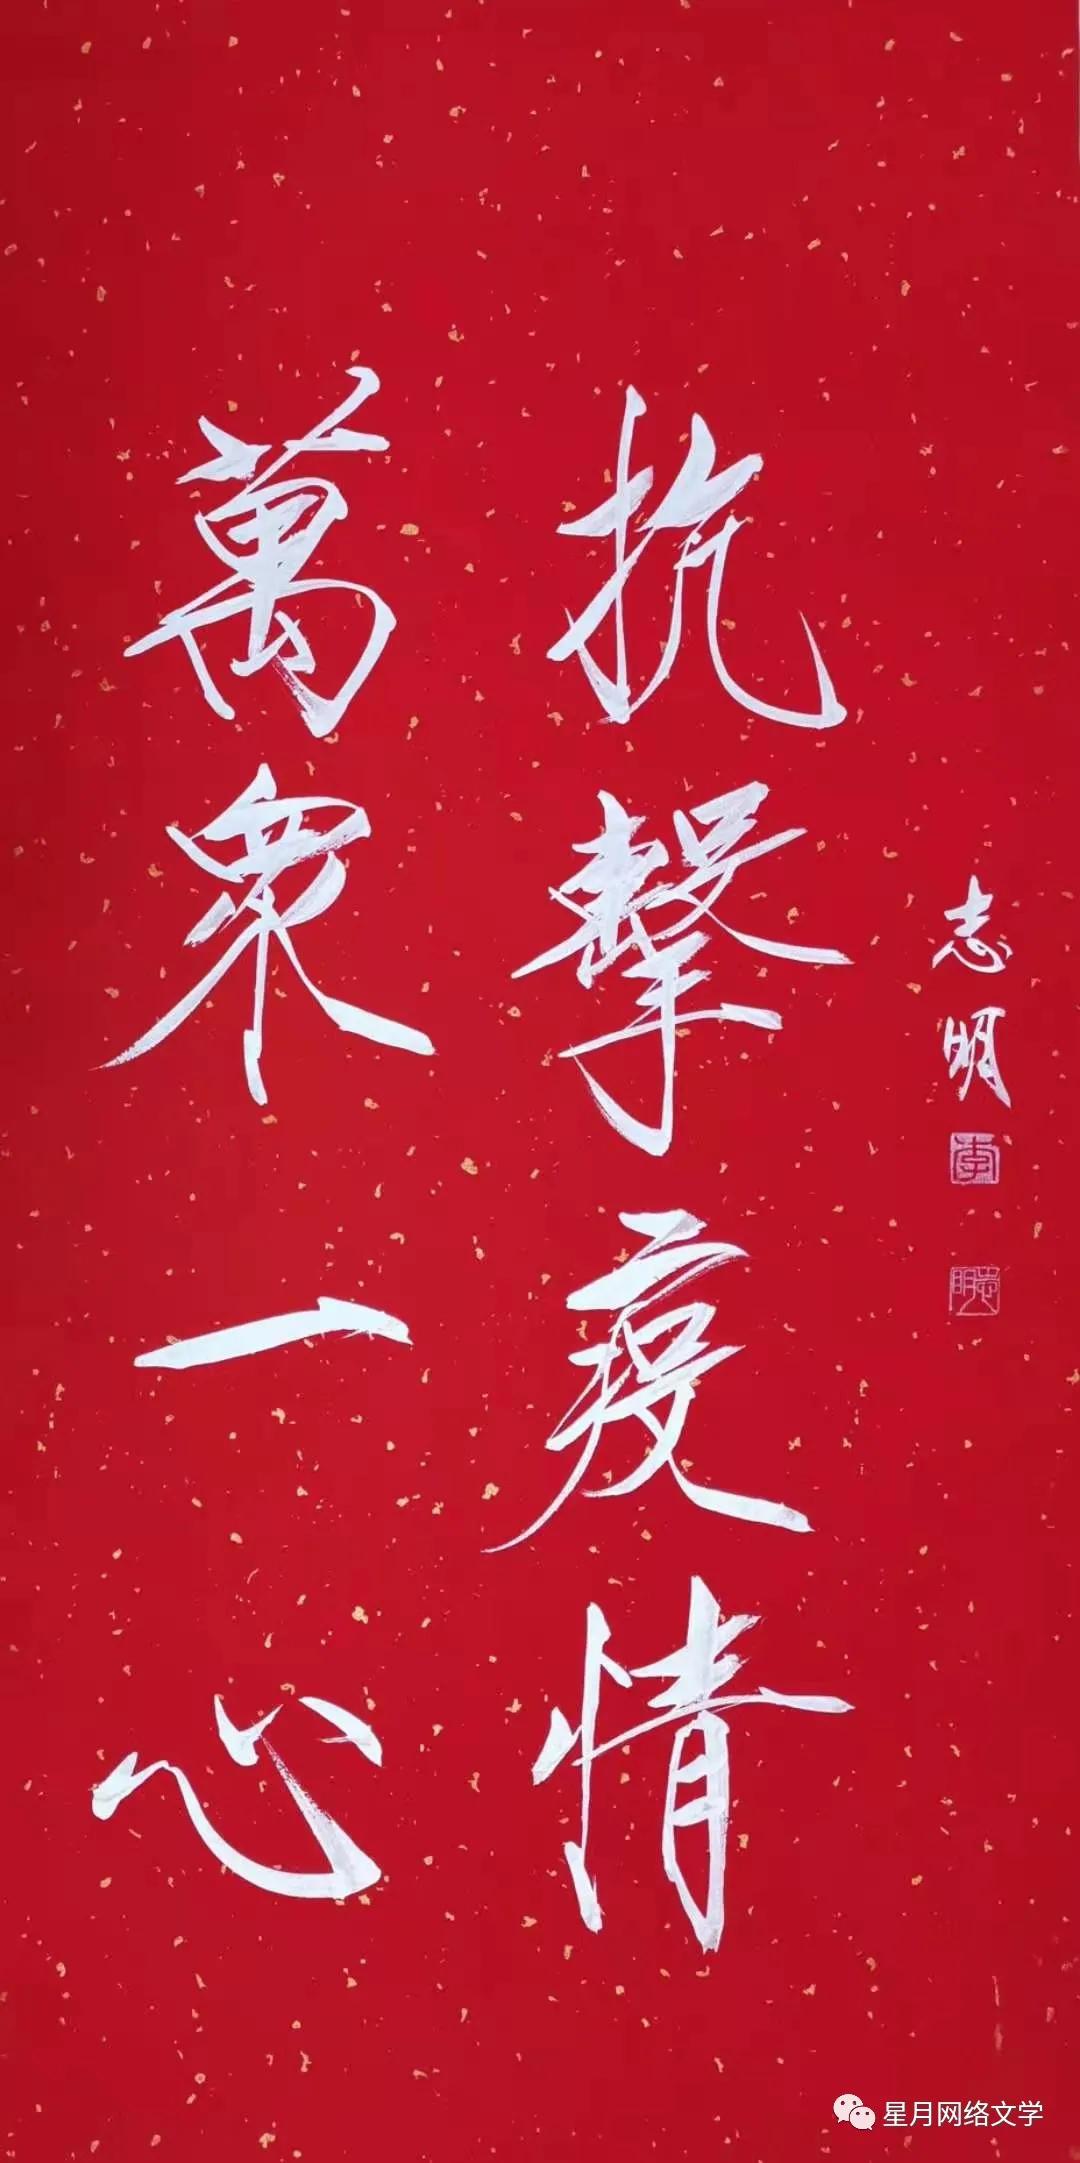 萬衆一心
抗擊疫情
志明
李
志明
星月网络文学